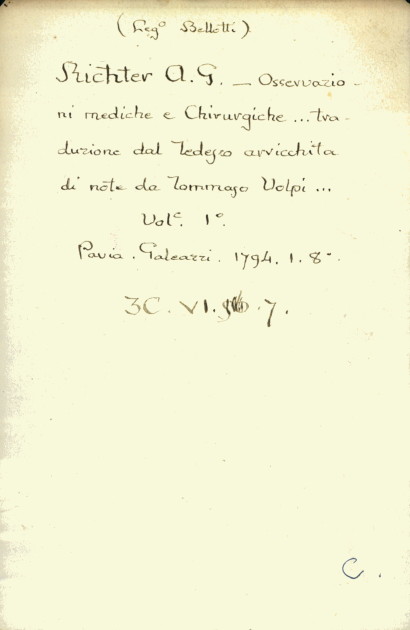 (Leg° Bellotti)
Richter A. G. — Osservazio-
ni mediche e Chirurgiche ... tra-
duzione dal Tedesco arricchita
di note da Tommaso Volpi ...
Vol.ᵉ 1°.
Pavia. Galeazzi. 1794. 1. 8°.
3C. VI. 7.
C.